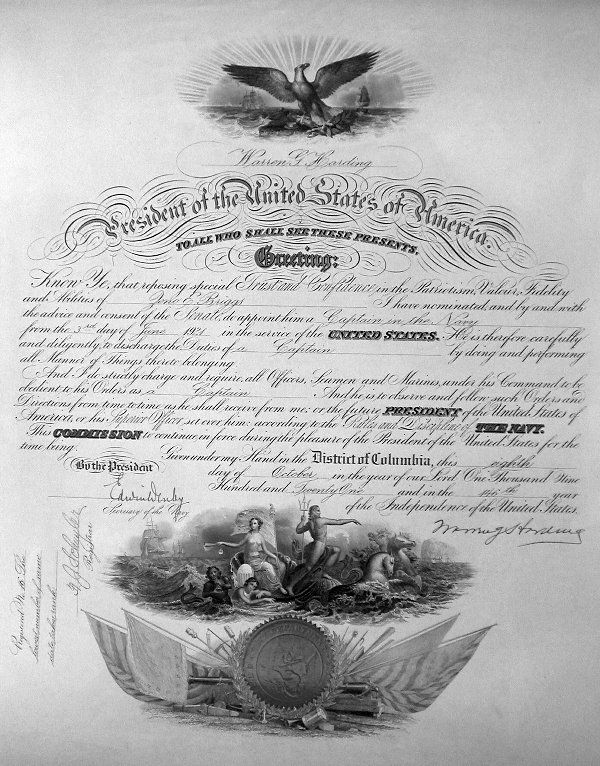 Warren G. Harding
President of the United States of America.
TO ALL WHO SHALL SEE THESE PRESENTS,
Greeting:
Know Ye, that reposing special Trust and Confidence in the Patriotism, Valour, Fidelity
and Abilities of Zeno E. Briggs I have nominated, and by and with
the advice and consent of the Senate, do appoint him a Captain in the Navy
from the 3rd day of June 1921 in the service of the UNITED STATES. He is therefore carefully
and diligently to discharge the Duties of a Captain by doing and performing
all Manner of Things thereto belonging.
And I do strictly charge and require, all Officers, Seamen and Marines, under his Command to be
obedient to his Orders as a Captain And he is to observe and follow such Orders and
Directions from time to time as he shall receive from me, or the future PRESIDENT of the United States of
America, or his Superior Officer set over him, according to the Rules and Discipline of THE NAVY.
This COMMISSION to continue in force during the pleasure of the President of the United States for the
time being.
Given under my Hand in the District of Columbia, this eighth
day of October in the year of our Lord One Thousand Nine
Hundred and Twenty One and in the 146th year
of the Independence of the United States.
By the President
Edwin Denby
Secretary of the Navy
Warren G Harding
Registrar
lowest number of same
date takes rank